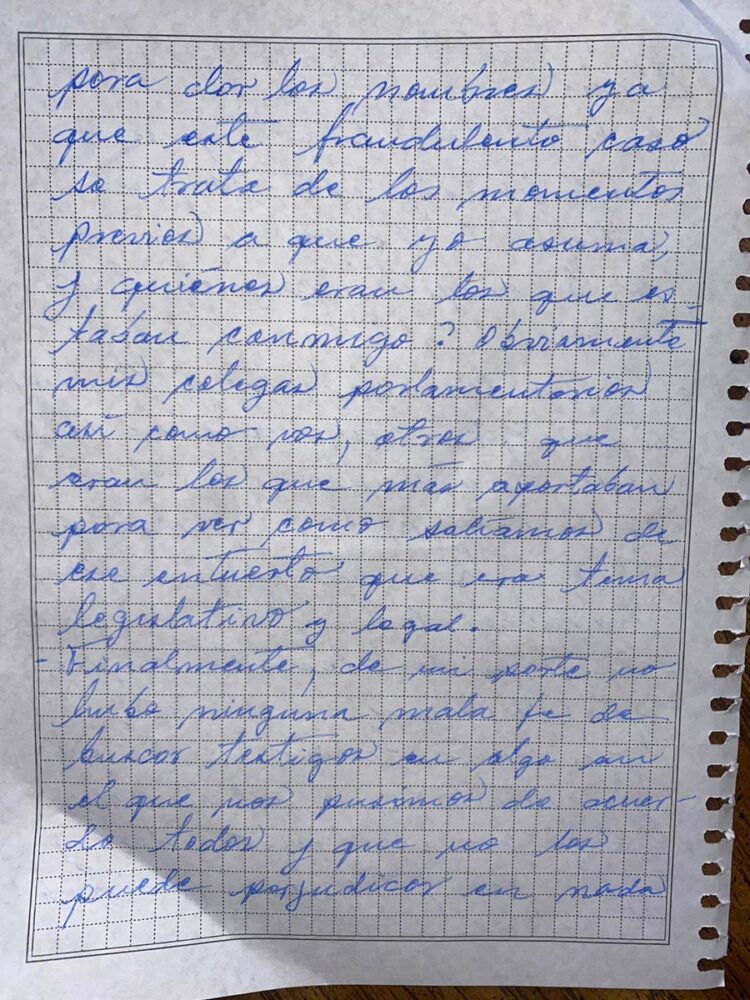 para dar los nombres ya
que este fraudulento caso
se trata de los momentos
previos a que yo asuma,
y quiénes eran los que es-
taban conmigo? Obviamente
mis colegas parlamentarios
así como vos, otros que
eran los que más aportaban
para ver como salíamos de
ese entuerto que era tema
legislativo y legal.
- Finalmente, de mi parte no
hubo ninguna mala fe de
buscar testigos en algo en
el que nos pusimos de acuer-
do todos y que no los
puede perjudicar en nada